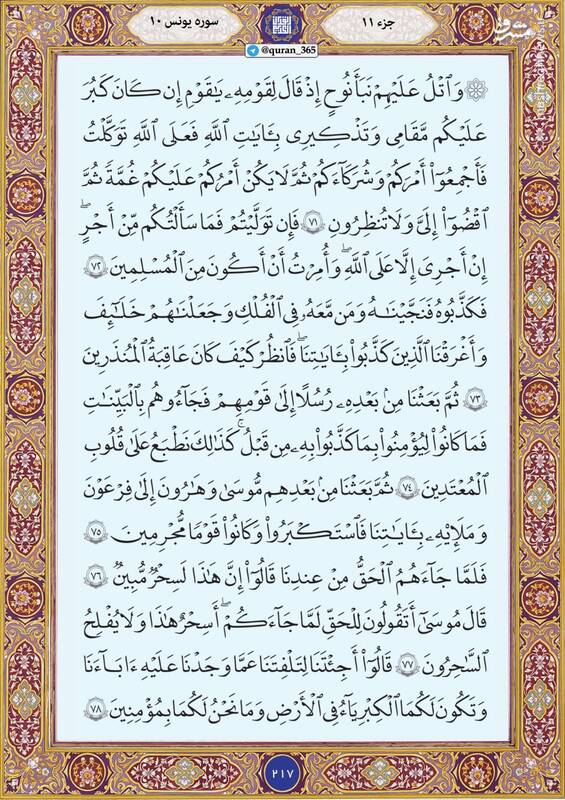 جزء ۱۱
سوره یونس ۱۰
@quran_365
مشرق
۞ وَٱتْلُ عَلَيْهِمْ نَبَأَ نُوحٍ إِذْ قَالَ لِقَوْمِهِۦ يَٰقَوْمِ إِن كَانَ كَبُرَ
عَلَيْكُم مَّقَامِى وَتَذْكِيرِى بِـَٔايَٰتِ ٱللَّهِ فَعَلَى ٱللَّهِ تَوَكَّلْتُ
فَأَجْمِعُوٓا۟ أَمْرَكُمْ وَشُرَكَآءَكُمْ ثُمَّ لَا يَكُنْ أَمْرُكُمْ عَلَيْكُمْ غُمَّةً ثُمَّ
ٱقْضُوٓا۟ إِلَىَّ وَلَا تُنظِرُونِ ۷۱ فَإِن تَوَلَّيْتُمْ فَمَا سَأَلْتُكُم مِّنْ أَجْرٍ ۖ
إِنْ أَجْرِىَ إِلَّا عَلَى ٱللَّهِ ۖ وَأُمِرْتُ أَنْ أَكُونَ مِنَ ٱلْمُسْلِمِينَ ۷۲
فَكَذَّبُوهُ فَنَجَّيْنَٰهُ وَمَن مَّعَهُۥ فِى ٱلْفُلْكِ وَجَعَلْنَٰهُمْ خَلَٰٓئِفَ
وَأَغْرَقْنَا ٱلَّذِينَ كَذَّبُوا۟ بِـَٔايَٰتِنَا ۖ فَٱنظُرْ كَيْفَ كَانَ عَٰقِبَةُ ٱلْمُنذَرِينَ
۷۳ ثُمَّ بَعَثْنَا مِنۢ بَعْدِهِۦ رُسُلًا إِلَىٰ قَوْمِهِمْ فَجَآءُوهُم بِٱلْبَيِّنَٰتِ
فَمَا كَانُوا۟ لِيُؤْمِنُوا۟ بِمَا كَذَّبُوا۟ بِهِۦ مِن قَبْلُ ۚ كَذَٰلِكَ نَطْبَعُ عَلَىٰ قُلُوبِ
ٱلْمُعْتَدِينَ ۷۴ ثُمَّ بَعَثْنَا مِنۢ بَعْدِهِم مُّوسَىٰ وَهَٰرُونَ إِلَىٰ فِرْعَوْنَ
وَمَلَإِي۟هِۦ بِـَٔايَٰتِنَا فَٱسْتَكْبَرُوا۟ وَكَانُوا۟ قَوْمًا مُّجْرِمِينَ ۷۵
فَلَمَّا جَآءَهُمُ ٱلْحَقُّ مِنْ عِندِنَا قَالُوٓا۟ إِنَّ هَٰذَا لَسِحْرٌ مُّبِينٌ ۷۶
قَالَ مُوسَىٰٓ أَتَقُولُونَ لِلْحَقِّ لَمَّا جَآءَكُمْ ۖ أَسِحْرٌ هَٰذَا وَلَا يُفْلِحُ
ٱلسَّٰحِرُونَ ۷۷ قَالُوٓا۟ أَجِئْتَنَا لِتَلْفِتَنَا عَمَّا وَجَدْنَا عَلَيْهِ ءَابَآءَنَا
وَتَكُونَ لَكُمَا ٱلْكِبْرِيَآءُ فِى ٱلْأَرْضِ وَمَا نَحْنُ لَكُمَا بِمُؤْمِنِينَ ۷۸
۲۱۷